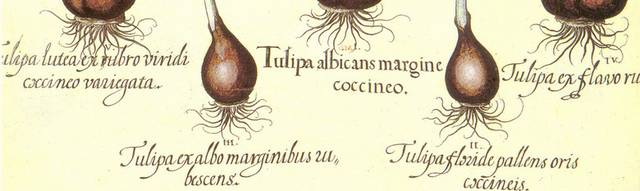 Tulipa lutea ex rubro viridi
coccineo variegata.
V.
Tulipa albicans margine
coccineo.
Tulipa ex flavo ru
IV.
III.
Tulipa ex albo marginibus ru„
bescens.
II.
Tulipa floride pallens oris
coccineis.